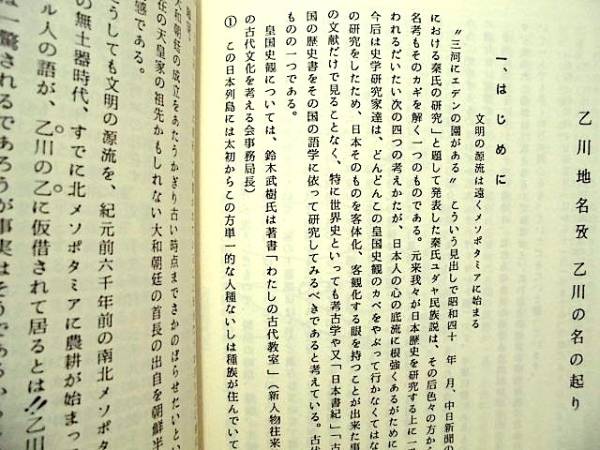 乙川地名攷 乙川の名の起り
一、はじめに
文明の源流は遠くメソポタミアに始まる
〃三河にエデンの園がある〃 こういう見出しで昭和四十 年 月、中日新聞の
における秦氏の研究」と題して発表した秦氏ユダヤ民族説は、その后色々の方から
名考もそのカギを解く一つのものである。元来我々が日本歴史を研究する上に一
われるだいたい次の四つの考えかたが、日本人の心の底流に根強くあるがために
今后は史学研究家達は、どんどんこの皇国史観のカベをやぶって行かなくてはな
の研究をしたため、日本そのものを客体化、客観化する眼を持つことが出来た事
の文献だけで見ることなく、特に世界史といっても考古学や又「日本書紀」「古
国の歴史書をその国の語学に依って研究してみるべきであると考えている。古代
ものの一つである。
皇国史観については、鈴木武樹氏は著書「わたしの古代教室」(新人物往来
の古代文化を考える会事務局長)
① この日本列島には太初からこの方単一的な人種ないしは種族が住んでいて
大和朝廷の成立をあたうかぎり古い時点までさかのぼらせたいとい
在の天皇家の祖先かもしれない大和朝廷の首長の出自を朝鮮半
感である。
うしても文明の源流を、紀元前六千年前の南北メソポタ
の無土器時代、すでに北メソポタミアに農耕が始まっ
ル人の語が、乙川の乙に仮借されて居るとは!!乙川
は一驚されるであろうが事実はそうであるか